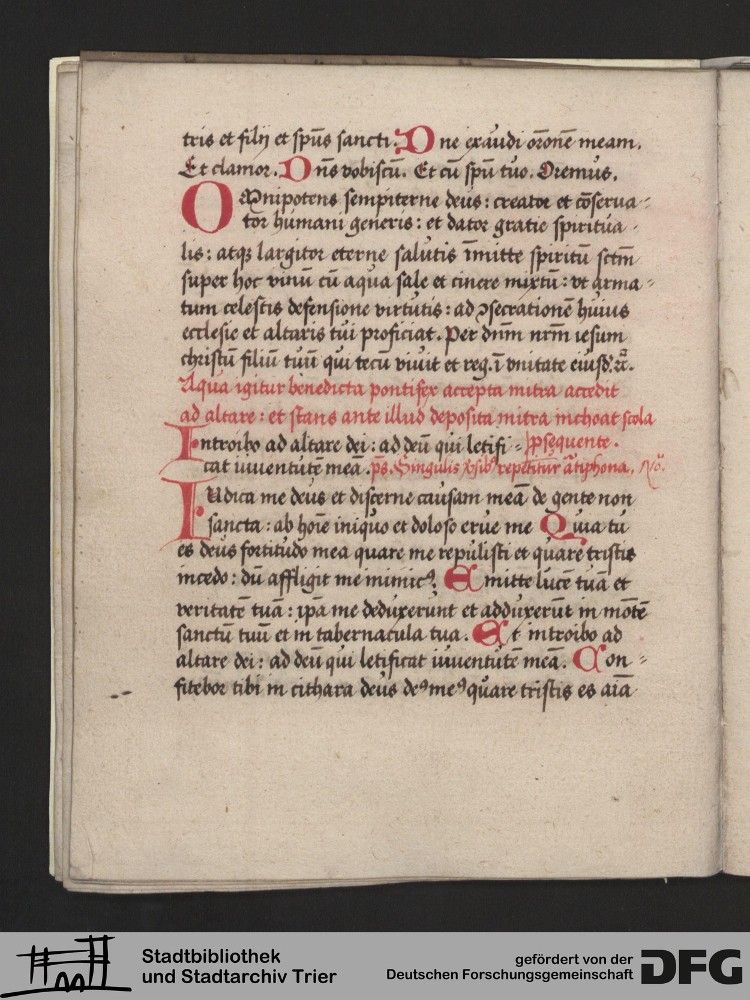 tris et filij et spūs sancti. Dne exaudi orōnē meam.
Et clamor. Dn̄s vobiscū. Et cū spū tuo. Oremus.
OMnipotens sempiterne deus: creator et cōserua⸗
tor humani generis: et dator gratie spiritua⸗
lis: atqꝫ largitor eterne salutis īmitte spiritū sctm̄
super hoc vinū cū aqua sale et cinere mixtū: vt arma⸗
tum celestis defensione virtutis: ad ꝯsecrationē huius
ecclesie et altaris tui proficiat. Per dnm̄ nrm̄ iesum
christū filiū tuū qui tecū viuit et reg. ī vnitate eiusd. ⁊c̄.
Aqua igitur benedicta pontifex accepta mitra accedit
ad altare: et stans ante illud deposita mitra inchoat scola
Introibo ad altare dei: ad deū qui letifi⸗ ꝓsequente.
cat iuuentutē meā. ps. Singulis v̄sib repetitur ātiphona.
IUdica me deus et discerne causam meā de gente non
sancta: ab hoīe iniquo et doloso erue me Quia tu
es deus fortitudo mea quare me repulisti et quare tristis
incedo: dū affligit me inimicꝰ. Emitte lucē tuā et
veritatē tuā: ip̄a me deduxerunt et adduxerūt in mōtē
sanctū tuū et in tabernacula tua. Et introibo ad
altare dei: ad deū qui letificat iuuentutē meā. Con⸗
fitebor tibi in cithara deus deꝰ meꝰ quare tristis es aīa
Stadtbibliothek
und Stadtarchiv Trier
gefördert von der
Deutschen Forschungsgemeinschaft
DFG